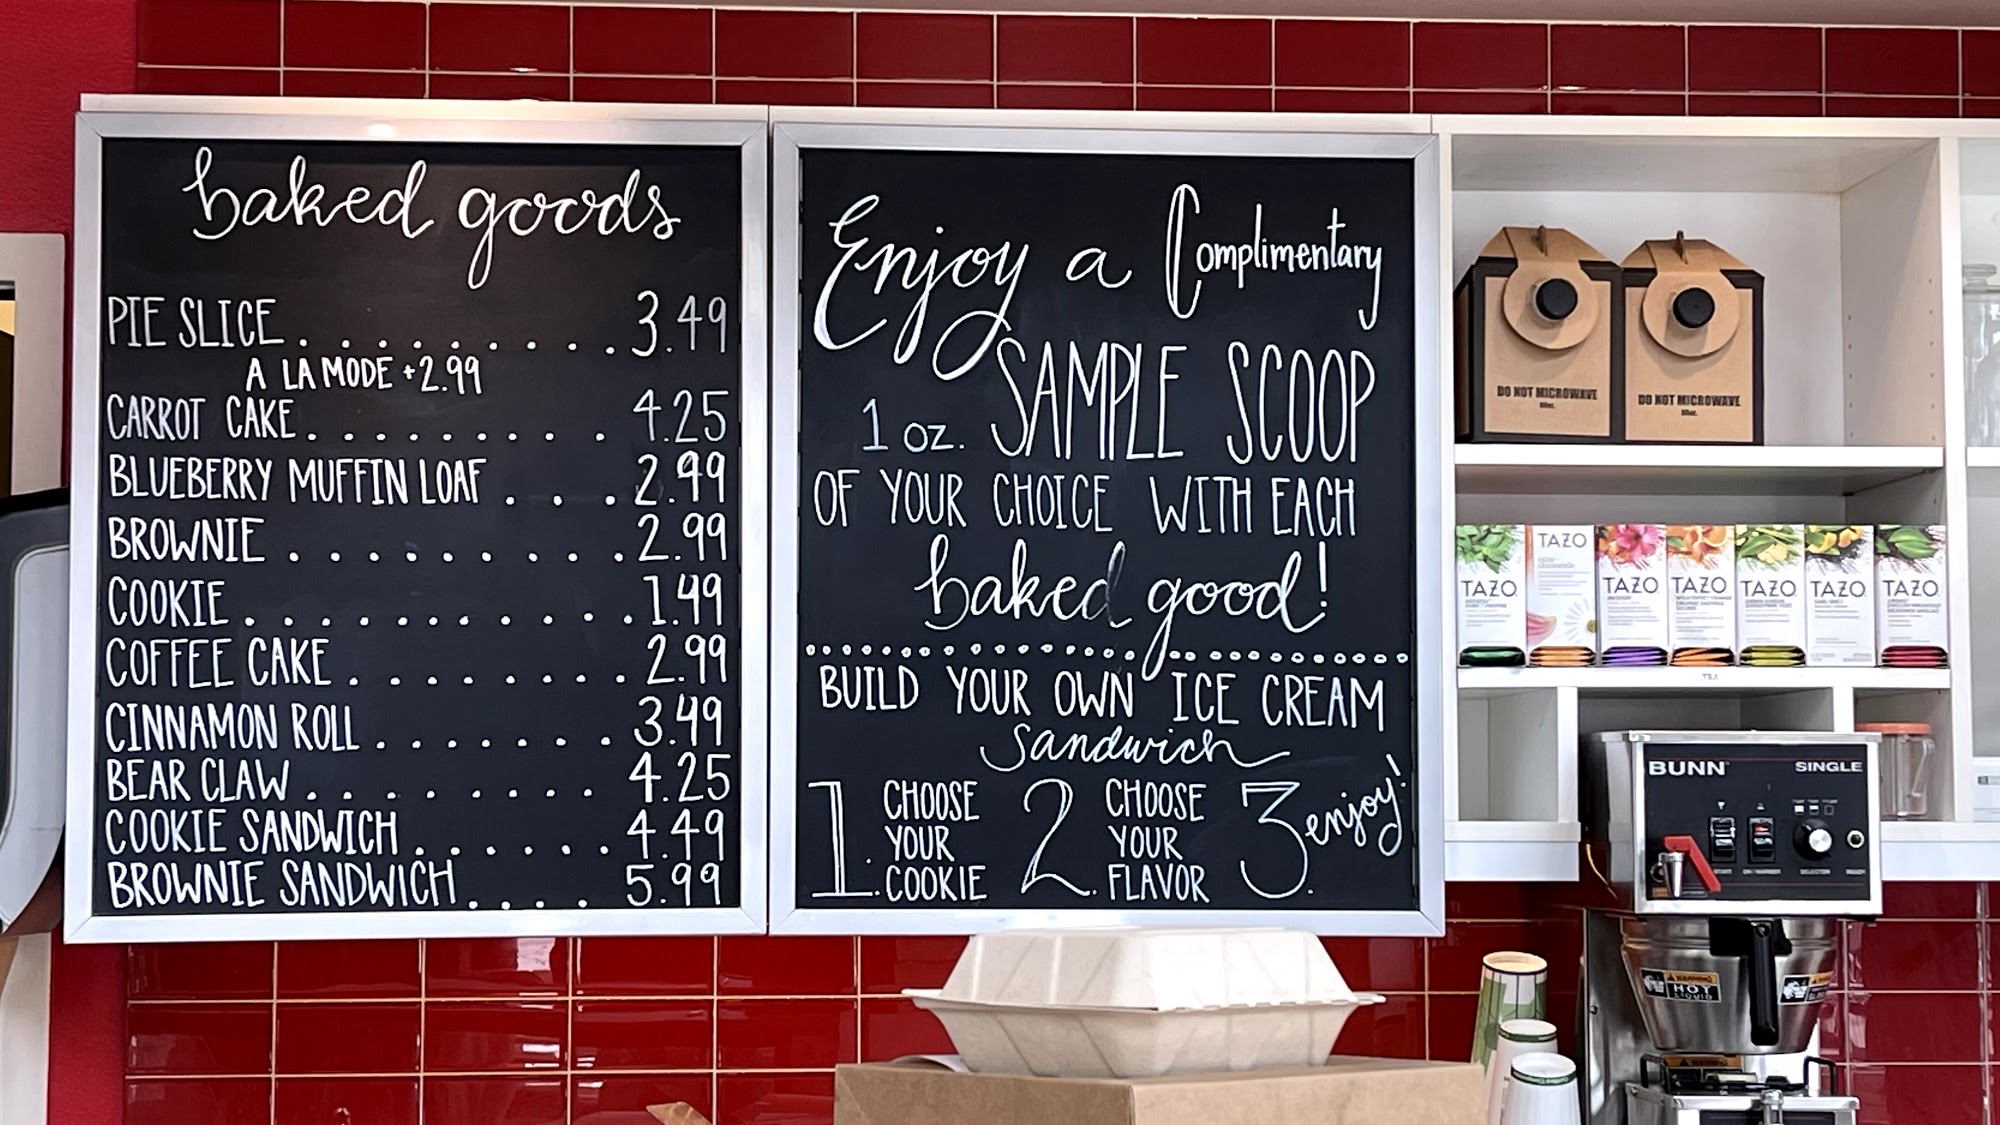 baked goods
PIE SLICE. . . . . . . . . . 3.49
A LA MODE +2.99
CARROT CAKE. . . . . . . . . 4.25
BLUEBERRY MUFFIN LOAF . . . 2.99
BROWNIE . . . . . . . . . . 2.99
COOKIE. . . . . . . . . . . . 1.49
COFFEE CAKE . . . . . . . . 2.99
CINNAMON ROLL . . . . . . . 3.49
BEAR CLAW . . . . . . . . 4.25
COOKIE SANDWICH. . . . . . . 4.49
BROWNIE SANDWICH. . . . . 5.99
Enjoy a Complimentary
1 oz. SAMPLE SCOOP
OF YOUR CHOICE WITH EACH
baked good!
BUILD YOUR OWN ICE CREAM
Sandwich
1. CHOOSE YOUR COOKIE
2. CHOOSE YOUR FLAVOR
3. enjoy!
DO NOT MICROWAVE
DO NOT MICROWAVE
TAZO
TAZO
TAZO
TAZO
TAZO
TAZO
TAZO
BUNN SINGLE
WARNING
HOT
LIQUID
WARNING